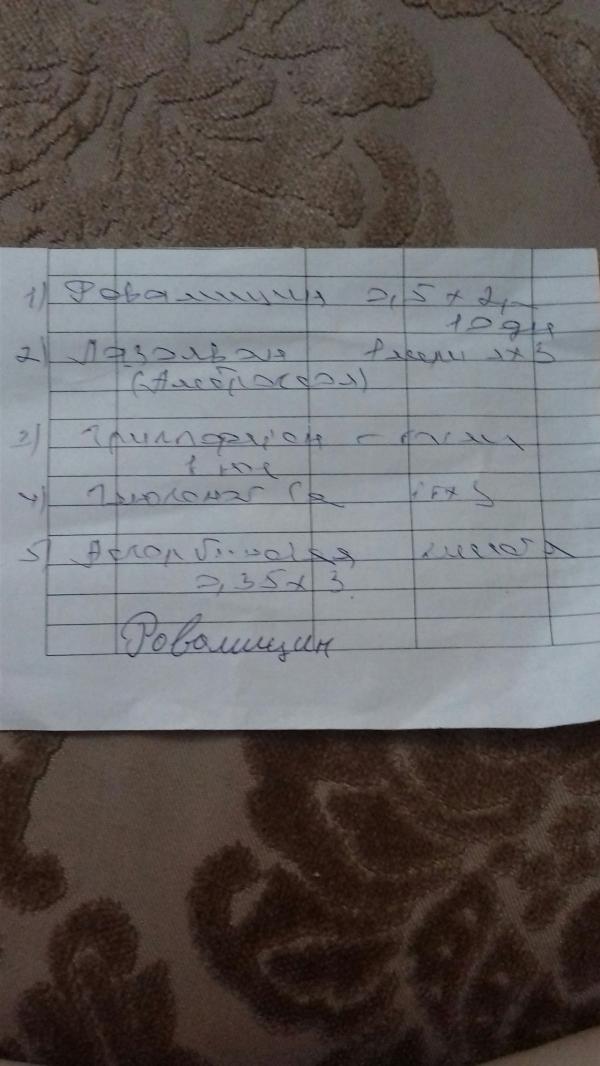 1) Ровамицин 0,5 x 2
10 дн
2) Лазолван x 3
(Амброксол)
3)
1
4) Глюконат Са x 3
5) Аскорбиновая кислота
0,35 x 3
Ровамицин